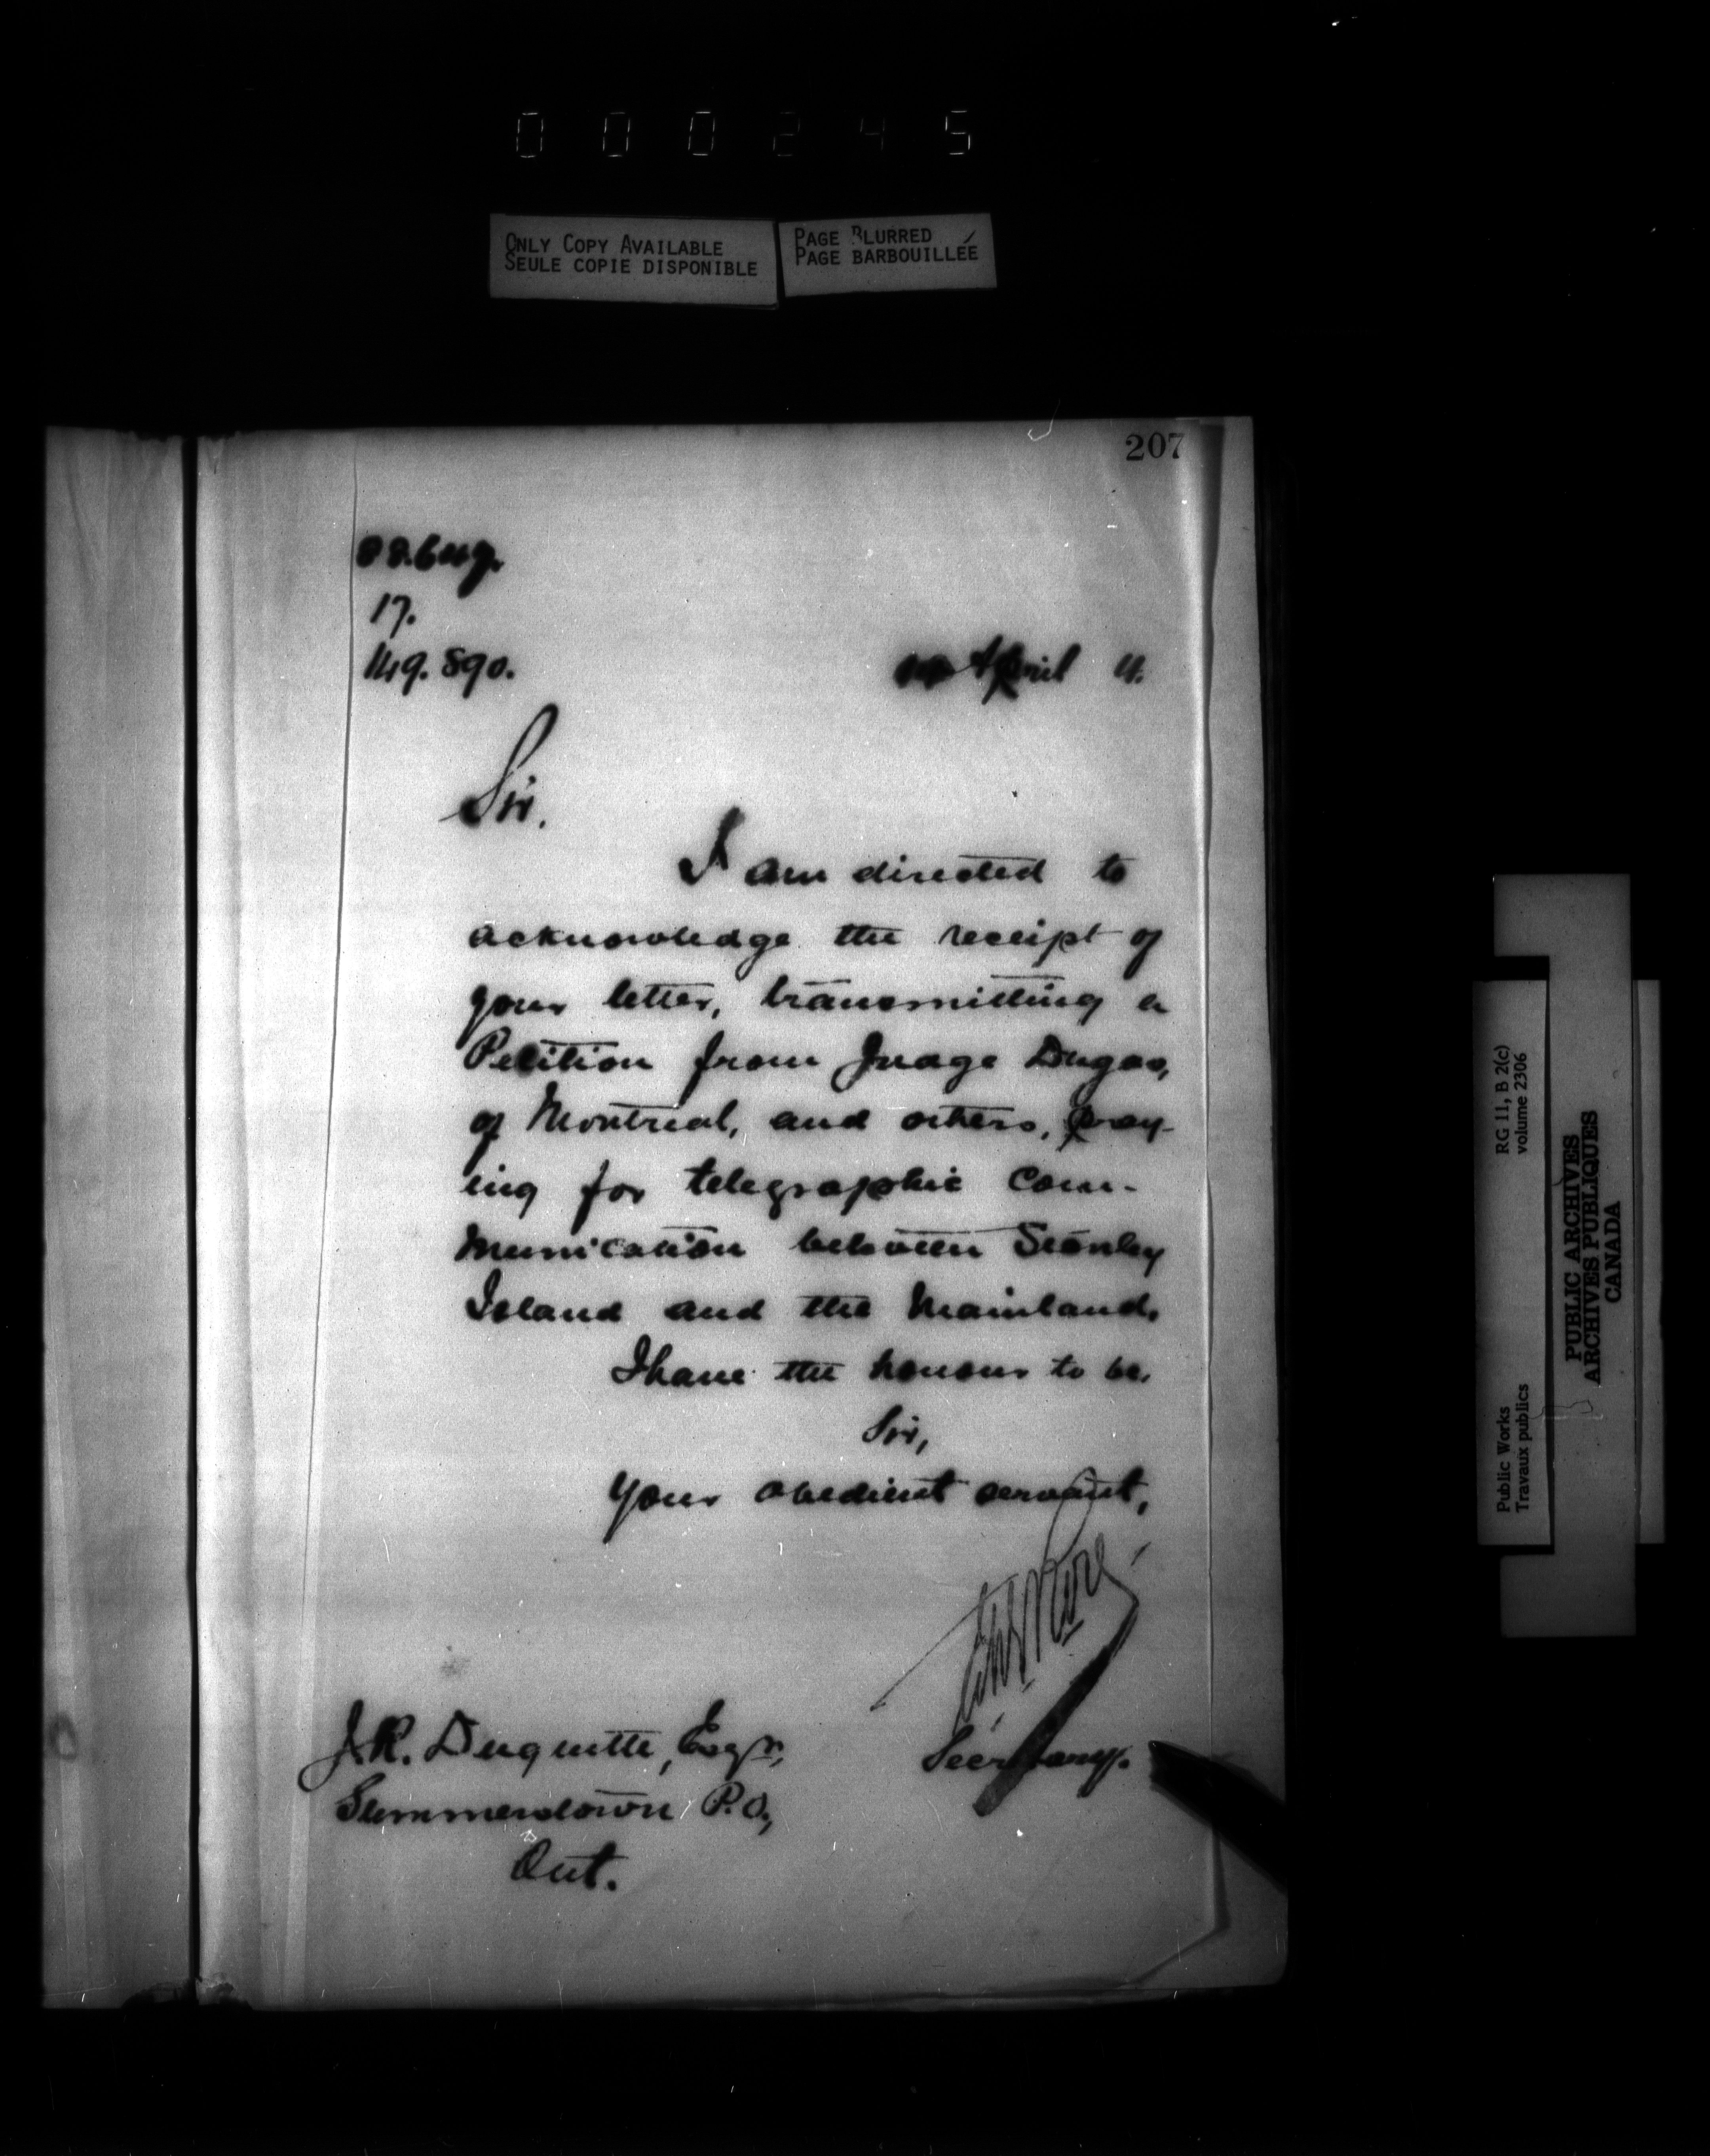 000245
ONLY COPY AVAILABLE
SEULE COPIE DISPONIBLE
PAGE BLURRED
PAGE BARBOUILLÉE
207
17.
149.890.
April 4.
Sir.
I am directed to
acknowledge the receipt of
your letter, transmitting a
Petition from Judge Dugas,
of Montreal, and others, pray-
ing for telegraphic com-
munication between Stanley
Island and the Mainland.
I have the honour to be,
Sir,
Your obedient servant,
Secretary.
J.R. Duquette, Esqr,
Summerstown P.O.,
Ont.
RG 11, B 2(c)
volume 2306
Public Works
Travaux publics
PUBLIC ARCHIVES
ARCHIVES PUBLIQUES
CANADA